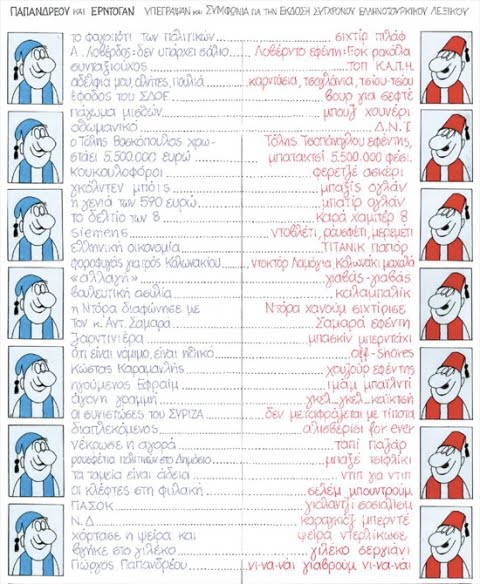 ΠΑΠΑΝΔΡΕΟΥ και ΕΡΝΤΟΓΑΝ ΥΠΕΓΡΑΨΑΝ και ΣΥΜΦΩΝΙΑ ΓΙΑ ΤΗΝ ΕΚΔΟΣΗ ΣΥΓΧΡΟΝΟΥ ΕΛΛΗΝΟΤΟΥΡΚΙΚΟΥ ΛΕΞΙΚΟΥ
το φαγοπότι των πολιτικών ........ σιχτίρ πιλάφ
Α. Λοβέρδος: δεν υπάρχει σάλιο ... Λοβέρντο εφέντη: Γιοκ ροχάλα
συνταξιούχος ........ τοπ Κ.Α.Π.Η.
αδέλφια μου, αλήτες, πουλιά ........ καρντάσια, τσογλάνια, τσίου-τσίου
έφοδος του ΣΔΟΕ ........ βουρ για σεφτέ
πάγωμα μισθών ........ μπουζ χουνέρι
οδωμανικό ........ Δ.Ν.Τ
ο Τόλης Βοσκόπουλος χρω- Τόλης Τσοπάνογλου εφέντης,
στάει 5.500.000 ευρώ ........ μπαταχτσί 5.500.000 φέσι.
κουκουλοφόροι ........ φερετζέ ασκέρι
γκόλντεν μπόις ........ μπαξίς ογλάν
η γενιά των 590 ευρώ ........ μπατίρ ογλάν
το δελτίο των 8 ........ καρά χαμπέρ 8
siemens ........ ντοβλέτι, ρουσφέτι, μερεμέτι
ελληνική οικονομία ........ ΤΙΤΑΝΙΚ παπόρ
φοροφυγάς γιατρός Κολωνακίου ... ντοκτόρ Λαμόγια, Κολωνάκι μαχαλά
«αλλαγή» ........ γιαβάς-γιαβάς
βουλευτική ασυλία ........ καλαμπαλίκ
η Ντόρα διαφώνησε με Ντόρα χανούμ σιχτίρισε
τον κ. Αντ. Σαμαρά ........ Σαμαρά εφέντη
ζαρντινιέρα ........ μπασκίν μπερντάχι
ότι είναι νόμιμο, είναι ηθικό ........ Off-Shores
Κώστας Καραμανλής ........ χουζούρ εφέντης
ηγούμενος Εφραίμ ........ ιμάμ μπαϊλντί
άγονη γραμμή ........ γκελ... γκελ... καϊκτσή
οι συνιστώσες του ΣΥΡΙΖΑ ........ δεν μεταφράζεται με τίποτα
διαπλεκόμενος ........ αλισβερίσι for ever
νέκρωσε η αγορά ........ ταπί παζάρ
ρουσφέτια πολιτικών στο Δημόσιο ........ μπαξέ τσιφλίκι
τα ταμεία είναι άδεια ........ ντιπ για ντιπ
οι κλέφτες στη φυλακή ........ σελέμ μπουντρούμ
ΠΑΣΟΚ ........ γιαλαντζί σοσιαλίεμ
Ν.Δ ........ καραγκιόζ μπερντέ
χόρτασε η ψείρα και ψείρα ντερλίκωσε
βγήκε στο γιλέκο ........ γιλέκο σεργιάνι
Γιώργος Παπανδρέου ........ νι-να-νάι γιαβρούμ νι-να-νάι